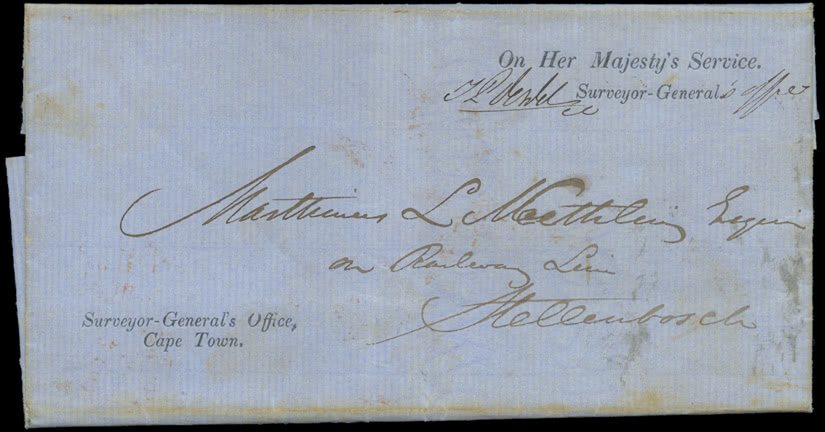 On Her Majesty's Service.
Surveyor-General's office
Marthinus L Neethling Esquire
on Railway Line
Stellenbosch
Surveyor-General's Office,
Cape Town.